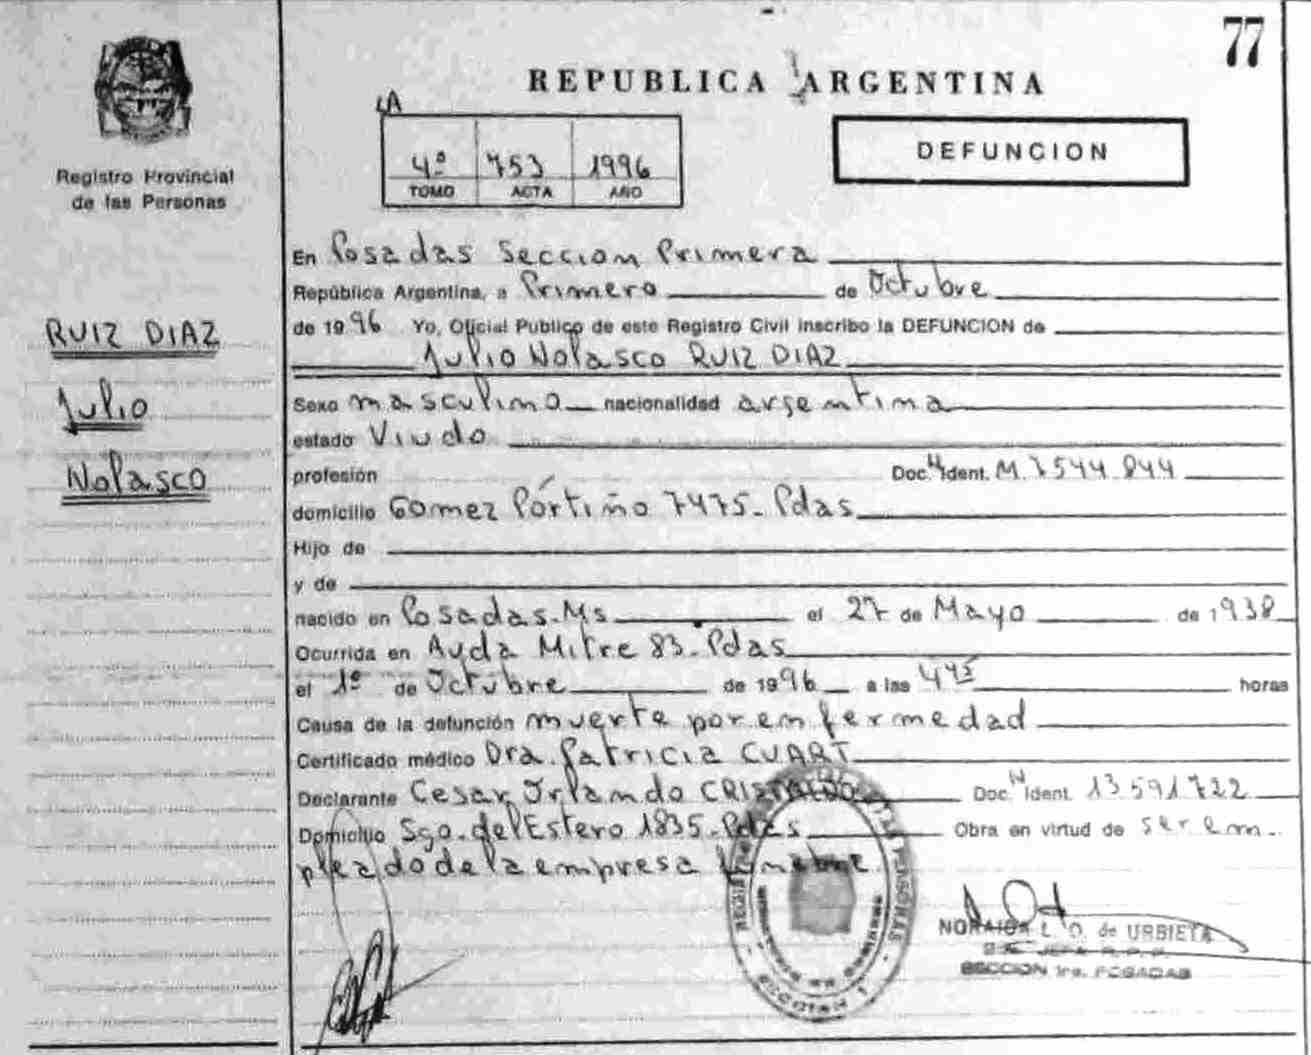 77
REPUBLICA ARGENTINA
Registro Provincial
de las Personas
LA
4º 753 1996
TOMO ACTA AÑO
DEFUNCION
RUIZ DIAZ
Julio
Nolasco
En Posadas Seccion Primera
República Argentina, a Primero de Octubre
de 1996 Yo, Oficial Publico de este Registro Civil inscribo la DEFUNCION de
Julio Nolasco RUIZ DIAZ
Sexo masculino nacionalidad argentina
estado Viudo
profesión Doc. N Ident. M. 7544.844
domicilio Gomez Pórtiño 7475-Pdas
Hijo de
y de
nacido en Posadas-Ms el 27 de Mayo de 1938
Ocurrida en Avda Mitre 83-Pdas
el 1º de Octubre de 1996 a las 4 45 horas
Causa de la defunción muerte por enfermedad
Certificado médico Dra. Patricia CUART
Declarante Cesar Orlando CRISTALDO Doc. N Ident. 13.591.722
Domicilio Sgo. del Estero 1835-Pdas Obra en virtud de ser em-
pleado de la empresa funebre.
NORAIDA L. O. de URBIETA
JEFA R.P.P.
SECCION 1ra. POSADAS